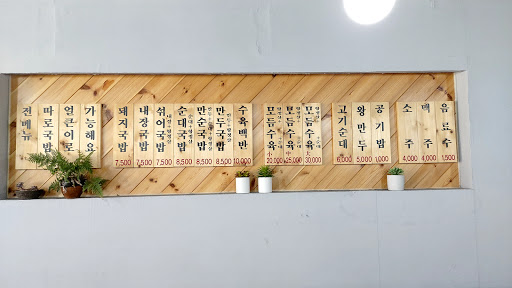 전메뉴
따로국밥
얼큰이로
가능해요
돼지국밥
7,500
내장국밥
7,500
섞어국밥
7,500
순대국밥
8,500
만순국밥
8,500
만두국밥
8,500
수육백반
10,000
모듬수육
20,000
모듬수육
25,000
모듬수육
30,000
고기순대
6,000
왕만두
5,000
공기밥
1,000
소주
4,000
맥주
4,000
음료수
1,500